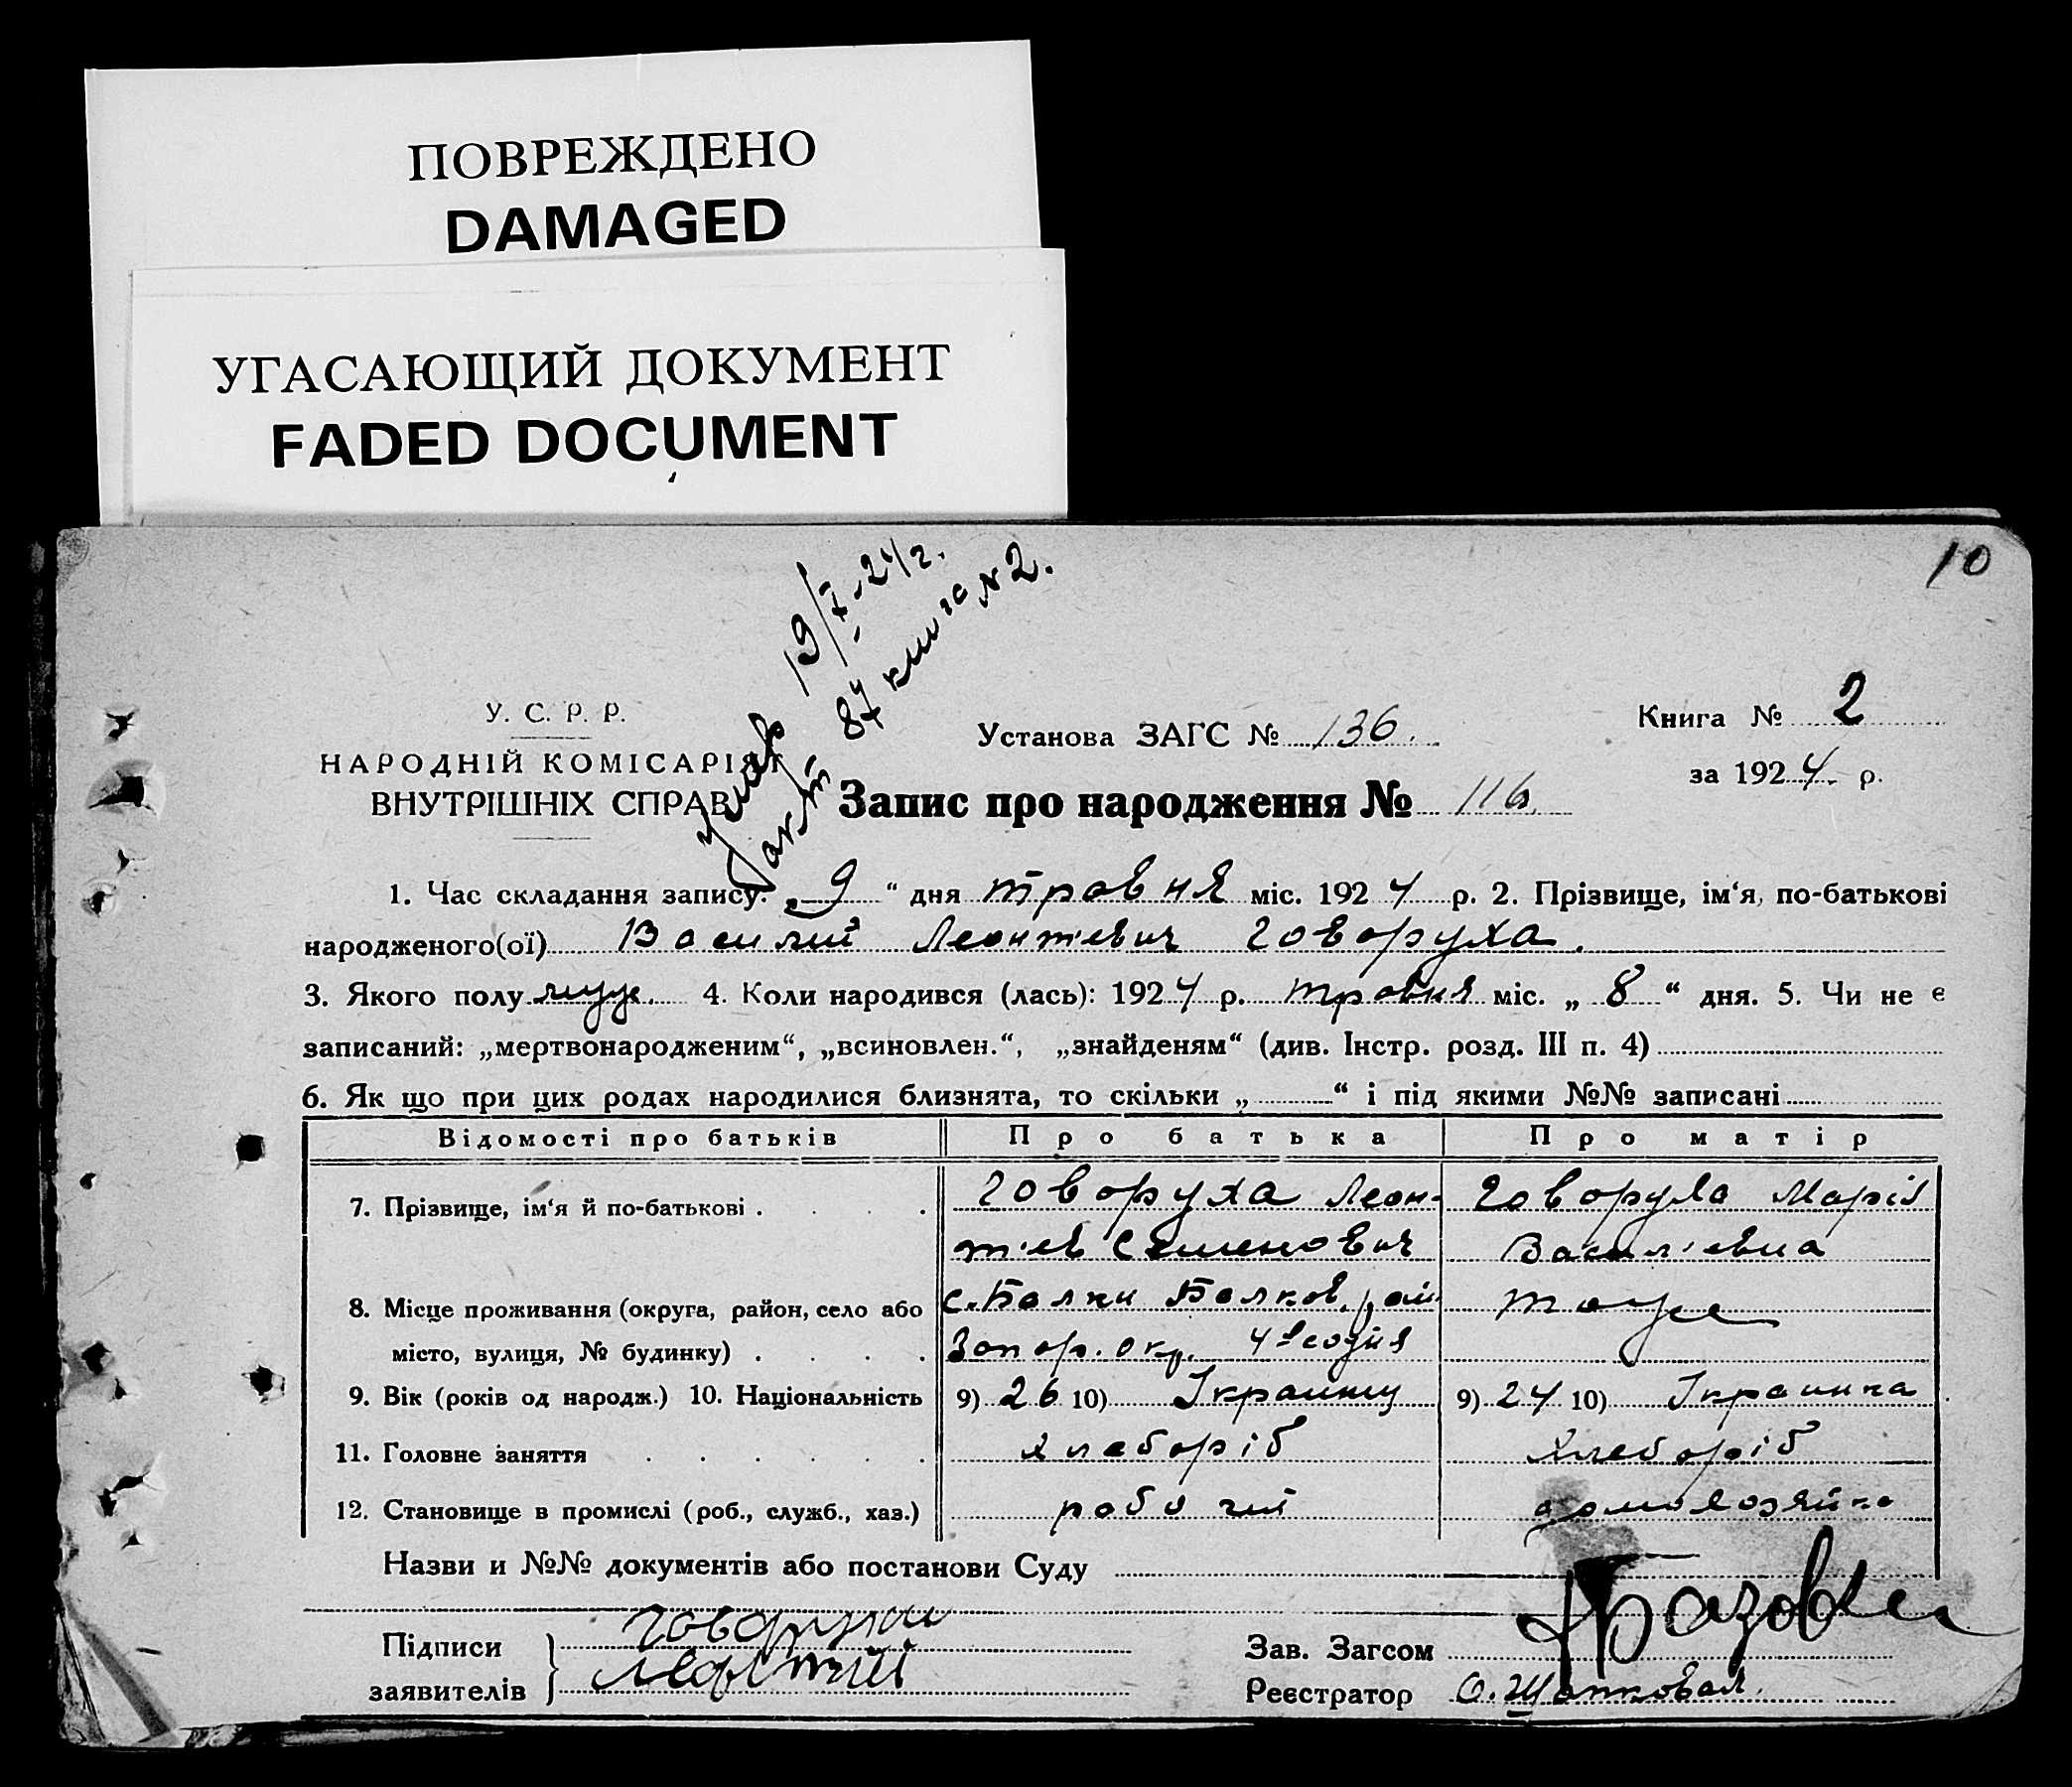 ПОВРЕЖДЕНО
DAMAGED
УГАСАЮЩИЙ ДОКУМЕНТ
FADED DOCUMENT
10
Умер 19/X-24г.
акт 87 книга №2.
У. С. Р. Р.
НАРОДНІЙ КОМІСАРІЯТ
ВНУТРІШНІХ СПРАВ
Установа ЗАГС № 136.
Книга № 2
за 1924 р.
Запис про народження № 116.
1. Час складання запису: „ 9 “ дня травня міс. 1924 р. 2. Прізвище, ім‘я, по-батькові
народженого(ої) Василий Леонтьевич Говоруха.
3. Якого полу муж. 4. Коли народився (лась): 1924 р. травня міс. „ 8 “ дня. 5. Чи не є
записаний: „мертвонародженим“, „всиновлен.“, „знайденям“ (див. Інстр. розд. III п. 4)
6. Як що при цих родах народилися близнята, то скільки „ “ і під якими №№ записані
Відомості про батьків Про батька Про матір
7. Прізвище, ім‘я й по-батькові . Говоруха Леон- Говоруха Марія
т'ев Семенович Васил'евна
8. Місце проживання (округа, район, село або с. Балки Балков. рай. тоже
місто, вулиця, № будинку) . Запор. окр.
9. Вік (років од народж.) 10. Національність 9) 26 10) Ікраинц 9) 24 10) Ікраинка
11. Головне заняття хлеборіб хлеборіб
12. Становище в промислі (роб., служб., хаз.) рабочий домохозяйка
Назви и №№ документів або постанови Суду
Підписи Говоруха
заявителів Леонтий
Зав. Загсом
Реєстратор